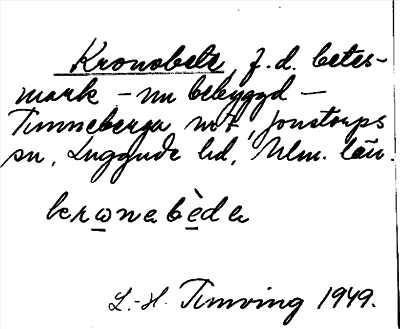 Kronobete f.d. betes-
mark - nu bebyggd -
Tunneberga nr 7, Jonstorps
sn, Luggude hd, Mlm. län.
krọnabèda
L.-H. Tunving 1949.